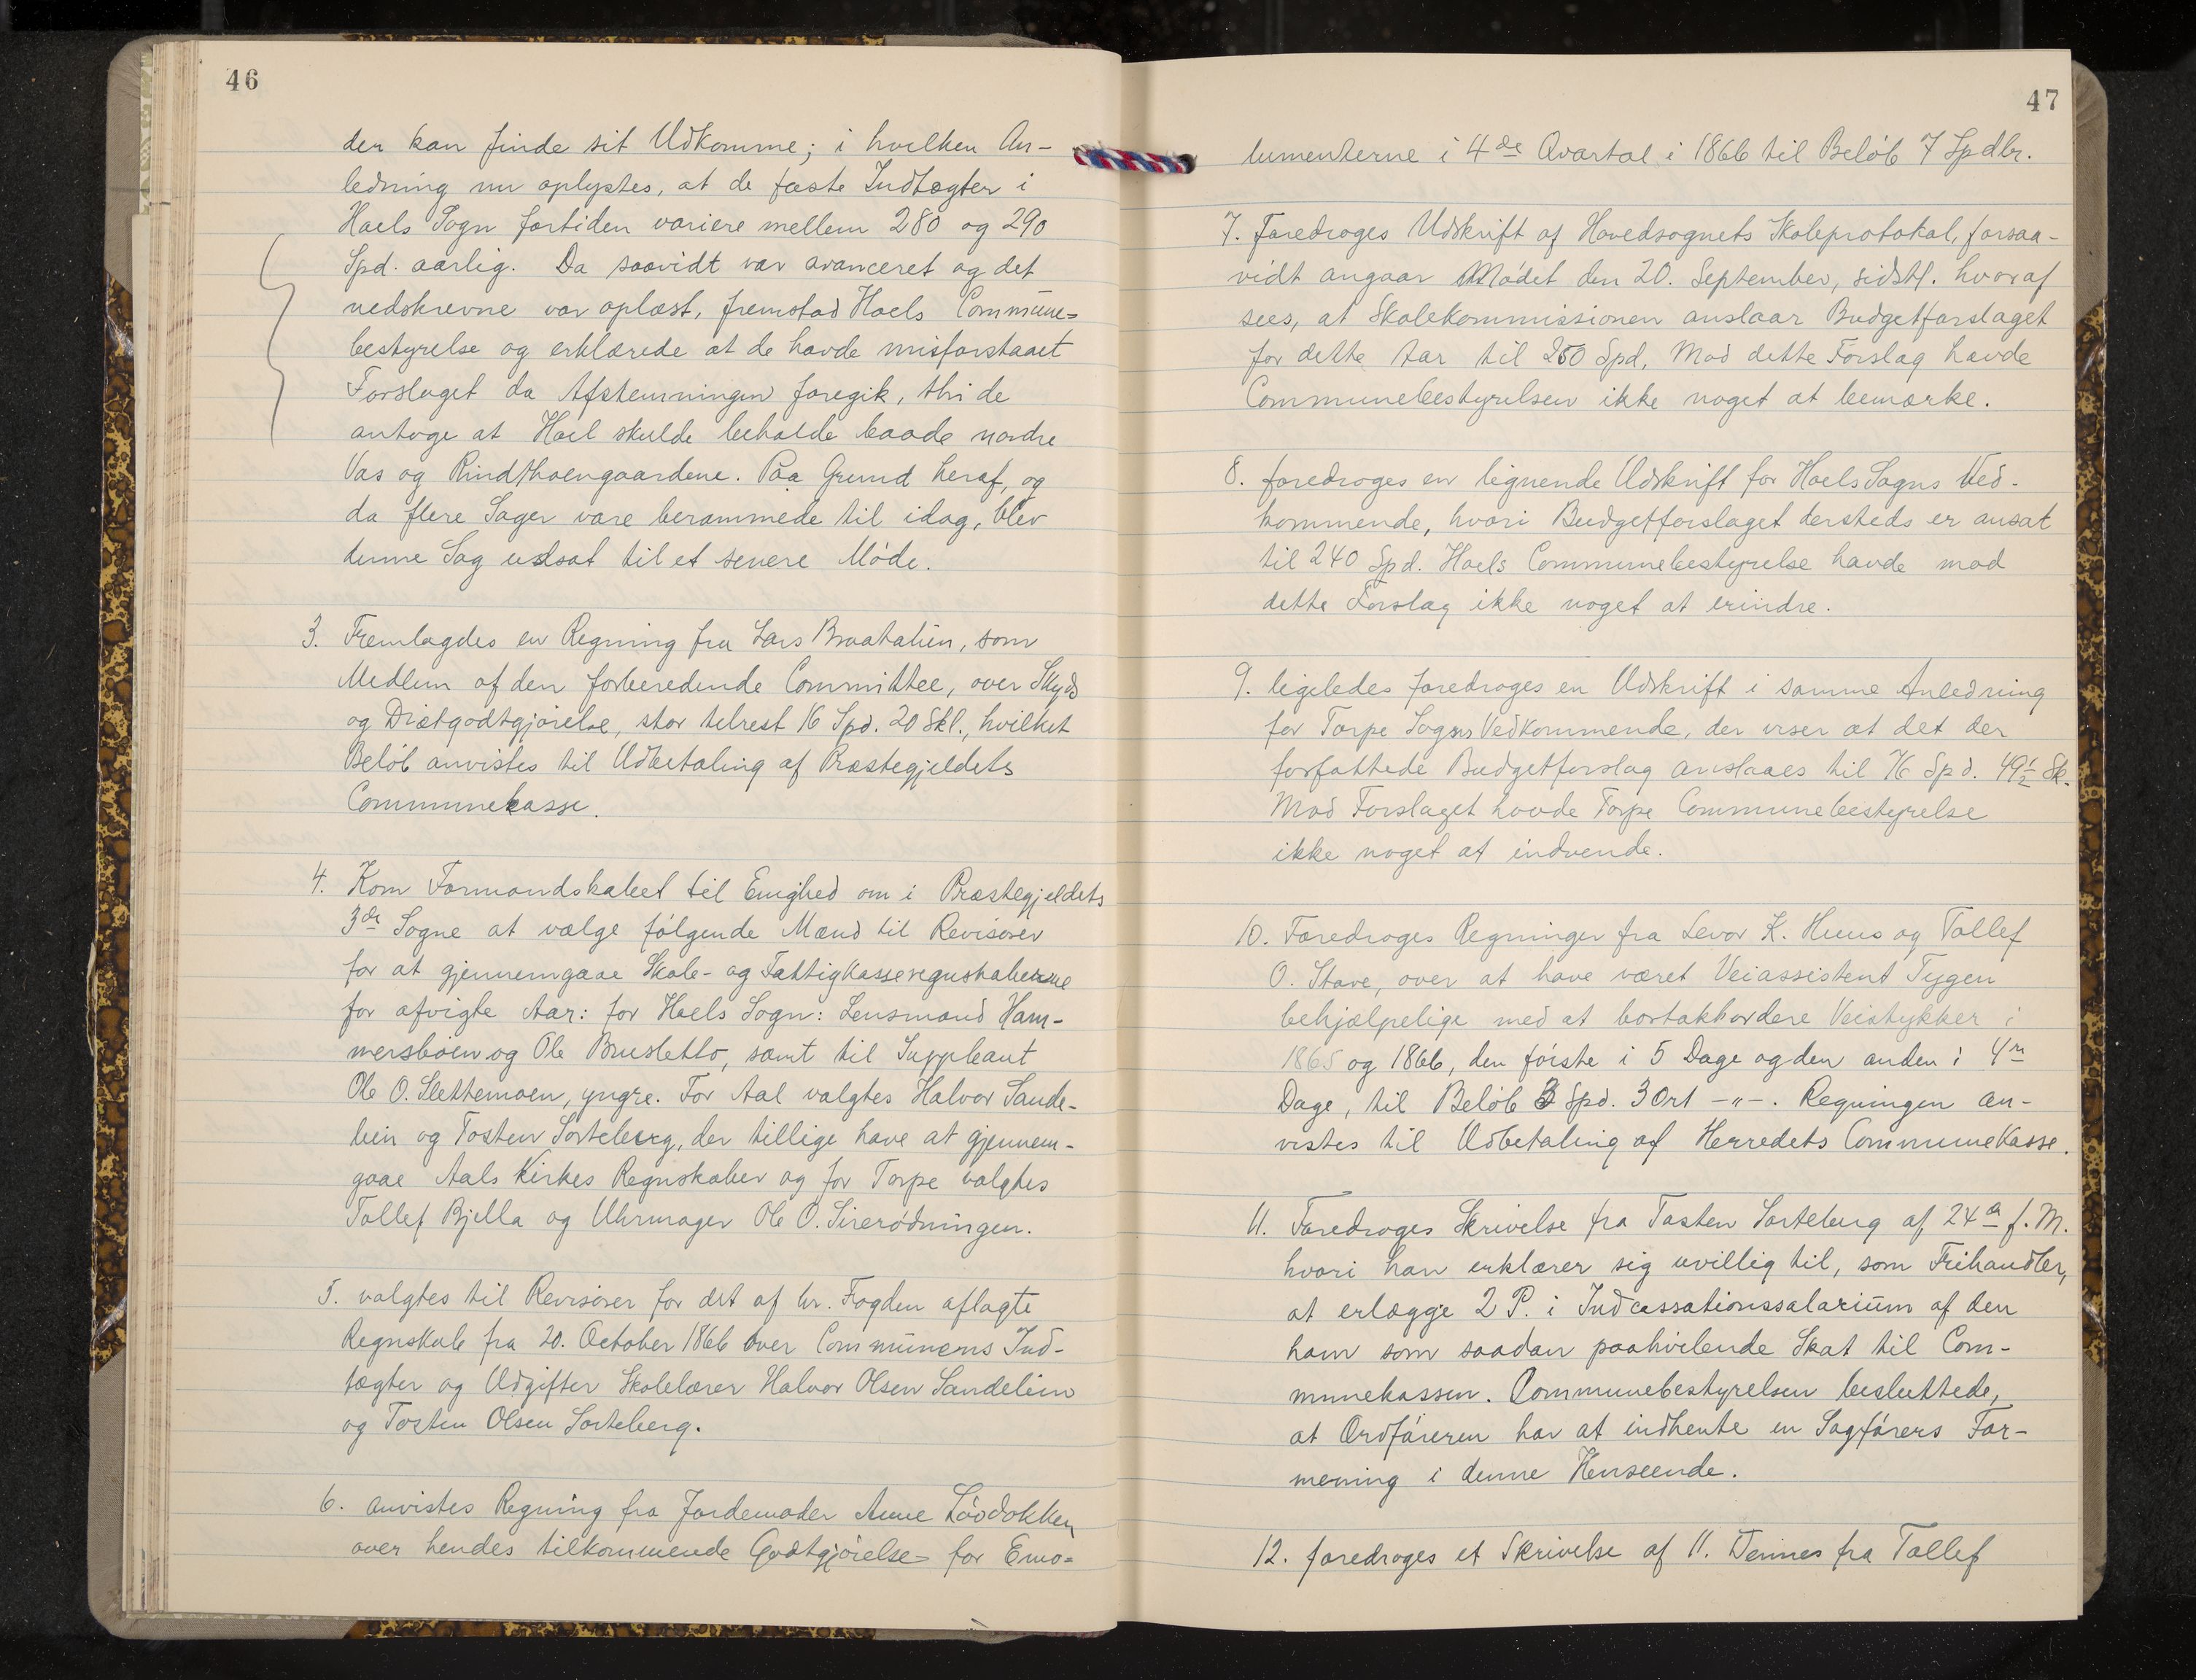 46
der kan finde sit Udkomme; i hvilken An-
ledning nu oplystes, at de faste Indtægter i
Hols Sogn fortiden variere mellem 280 og 290
Spd. aarlig. Da saavidt var avanceret og det
nedskrevne var oplæst, fremstod Hols Commune=
bestyrelse og erklærede at de havde misforstaaet
Forslaget da Afstemningen foregik, thi de
antoge at Hol skulde beholde baade nordre
Vas og Rindthoengaardene. Paa Grund heraf, og
da flere Sager vare berammede til idag, blev
denne Sag udsat til et senere Møde.
3. Fremlagdes en Regning fra Lars Braatalien, som
Medlem af den forberedende Committee, over Skyds
og Diætgodtgjørelse, stor telrest 16 Spd. 20 Skl., hvilket
Beløb anvistes til Udbetaling af Præstegjeldets
Communekasse.
4. Kom Formandskabet til Enighed om i Præstegjeldets
3de Sogne at vælge følgende Mænd til Revisorer
for at gjennemgaae Skole- og Fattigkasseregnskaberne
for afvigte Aar: for Hols Sogn: Lensmand Ham-
mersbøen og Ole Brusletto, samt til Suppleant
Ole O. Slettemoen, yngre. For Aal valgtes Halvor Sande-
lien og Tosten Sorteberg, der tillige have at gjennem-
gaae Aals Kirkes Regnskaber og for Torpe valgtes
Tollef Bjella og Uhrmager Ole O. Sirerødningen.
5. valgtes til Revisorer for det af hr. Fogden aflagte
Regnskab fra 20. October 1866 over Communens Ind-
tægter og Udgifter Skolelærer Halvor Olsen Sandelien
og Tosten Olsen Sorteberg.
6. anvistes Regning fra Jordemoder Anne Løvdokken
over hendes tilkommende Godtgjørelse for Emo=
47
lumenterne i 4de Qvartal i 1866 til Beløb 7 Spdlr.
7. Foredroges Udskrift af Hovedsognets Skoleprotokol, forsaa-
vidt angaar Mødet den 20. September, sidstl. hvoraf
sees, at Skolekommissionen anslaar Budgetforslaget
for dette Aar til 250 Spd. Mod dette Forslag havde
Communebestyrelsen ikke noget at bemærke.
8. foredroges en lignende Udskrift for Hols Sogns Ved-
kommende, hvori Budgetforslaget dersteds er ansat
til 240 Spd. Hols Communebestyrelse havde mod
dette Forslag ikke noget at erindre.
9. ligeledes foredroges en Udskrift i samme Anledning
for Torpe Sogns Vedkommende, der viser at det der
forfattede Budgetforslag anslaaes til 76 Spd. 49½ Sk.
Mod Forslaget havde Torpe Communebestyrelse
ikke noget at indvende.
10. Foredroges Regninger fra Levor K. Huus og Tollef
O. Stave, over at have været Veiassistent Tygen
behjælpelige med at bortakkordere Veistykker i
1865 og 1866, den første i 5 Dage og den anden i 4re
Dage, til Beløb 3 Spd. 3 Ort -"-. Regningen an-
vistes til Udbetaling af Herredets Communekasse.
11. Foredroges Skrivelse fra Tosten Sorteberg af 24de f. M.
hvori han erklærer sig uvillig til, som Frihandler,
at erlægge 2 P. i Indcassationssalarium af den
ham som saadan paahvilende Skat til Com-
munekassen. Communebestyrelsen besluttede,
at Ordføreren har at indhente en Sagførers For-
mening i denne Henseende.
12. foredroges et Skrivelse af 11. Dennes fra Tollef